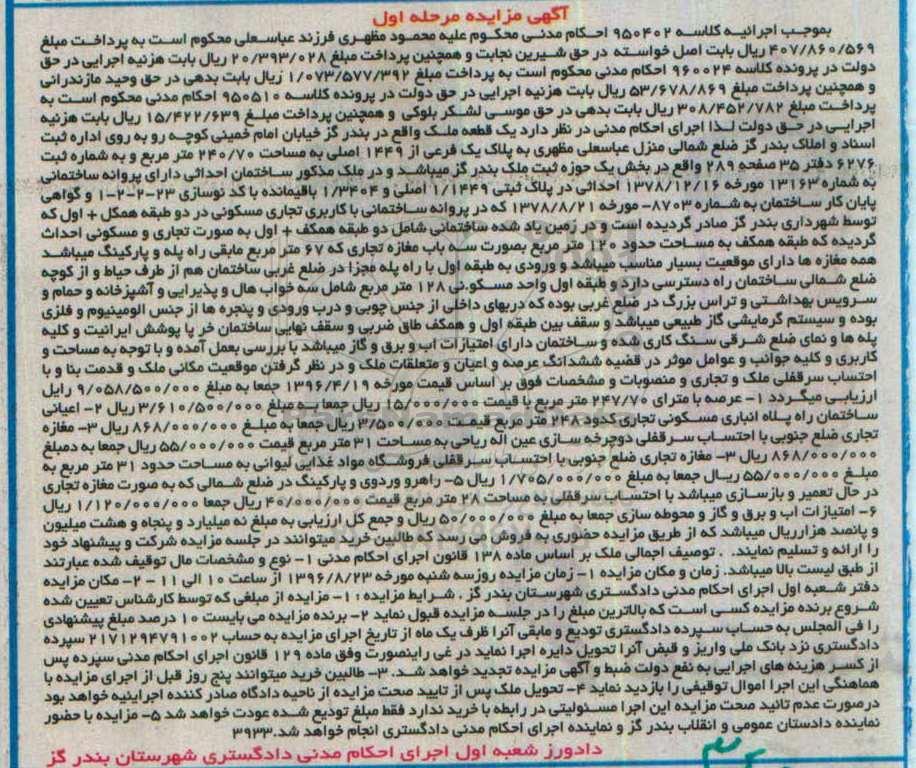 آگهی مزایده مرحله اول
بموجب اجرائیه کلاسه ۹۵۰۴۰۲ احکام مدنی محکوم علیه محمود مظهری فرزند عباسعلی محکوم است به پرداخت مبلغ
۴۰۷/۸۶۰/۵۶۹ ریال بابت اصل خواسته در حق شیرین نجابت و همچنین پرداخت مبلغ ۲۰/۳۹۳/۰۲۸ ریال بابت هزینه اجرایی در حق
دولت در پرونده کلاسه ۹۶۰۰۲۴ احکام مدنی محکوم است به پرداخت مبلغ ۱/۰۷۳/۵۷۷/۳۹۲ ریال بابت بدهی در حق وحید مازندرانی
و همچنین پرداخت مبلغ ۵۳/۶۷۸/۸۶۹ ریال بابت هزینه اجرایی در حق دولت در پرونده کلاسه ۹۵۰۵۱۰ احکام مدنی محکوم است به
پرداخت مبلغ ۳۰۸/۴۵۲/۷۸۲ ریال بابت بدهی در حق موسی لشکر بلوکی و همچنین پرداخت مبلغ ۱۵/۴۲۲/۶۳۹ ریال بابت هزینه
اجرایی در حق دولت لذا اجرای احکام مدنی در نظر دارد یک قطعه ملک واقع در بندر گز خیابان امام خمینی کوچه رو به روی اداره ثبت
اسناد و املاک بندر گز ضلع شمالی منزل عباسعلی مظهری به پلاک یک فرعی از ۱۴۴۹ اصلی به مساحت ۲۴۰/۷۰ متر مربع و به شماره ثبت
۶۲۷۶ دفتر ۳۵ صفحه ۲۸۹ واقع در بخش یک حوزه ثبت ملک بندر گز میباشد و در ملک مذکور ساختمان احداثی دارای پروانه ساختمانی
به شماره ۱۳۱۶۳ مورخه ۱۳۷۸/۱۲/۱۶ احداثی در پلاک ثبتی ۱/۱۴۴۹ اصلی و ۱/۳۴۰۴ باقیمانده با کد نوسازی ۲۳-۲-۲-۱ و گواهی
پایان کار ساختمان به شماره ۸۷۰۳- مورخه ۱۳۷۸/۸/۲۱ که در پروانه ساختمانی با کاربری تجاری مسکونی در دو طبقه همکل + اول که
توسط شهرداری بندر گز صادر گردیده است و در زمین یاد شده ساختمانی شامل دو طبقه همکف + اول به صورت تجاری و مسکونی احداث
گردیده که طبقه همکف به مساحت حدود ۱۲۰ متر مربع بصورت سه باب مغازه تجاری که ۶۷ متر مربع مابقی راه پله و پارکینگ میباشد
همه مغازه ها دارای موقعیت بسیار مناسب میباشد و ورودی به طبقه اول با راه پله مجزا در ضلع غربی ساختمان هم از طرف حیاط و از کوچه
ضلع شمالی ساختمان راه دسترسی دارد و طبقه اول واحد مسکو.نی ۱۲۸ متر مربع شامل سه خواب هال و پذیرایی و آشپزخانه و حمام و
سرویس بهداشتی و تراس بزرگ در ضلع غربی بوده که دربهای داخلی از جنس چوبی و درب ورودی و پنجره ها از جنس الومینیوم و فلزی
بوده و سیستم گرمایشی گاز طبیعی میباشد و سقف بین طبقه اول و همکف طاق ضربی و سقف نهایی ساختمان خر پا پوشش ایرانیت و کلیه
پله ها و نمای ضلع شرقی سنگ کاری شده و ساختمان دارای امتیازات اب و برق و گاز میباشد با بررسی بعمل آمده و با توجه به مساحت و
کاربری و کلیه جوانب و عوامل موثر در قضیه ششدانگ عرصه و اعیان و متعلقات ملک و در نظر گرفتن موقعیت مکانی ملک و قدمت بنا و با
احتساب سرقفلی ملک و تجاری و منصوبات و مشخصات فوق بر اساس قیمت مورخه ۱۳۹۶/۴/۱۹ جمعا به مبلغ ۹/۰۵۸/۵۰۰/۰۰۰ رایل
ارزیابی میگردد ۱- عرصه با مترای ۲۴۷/۷۰ متر مربع با قیمت ۱۵/۰۰۰/۰۰۰ ریال جمعا به مبلغ ۳/۶۱۰/۵۰۰/۰۰۰ ریال ۲- اعیانی
ساختمان راه پلاه انباری مسکونی تجاری کدود ۲۴۸ متر مربع قیمت ۳/۵۰۰/۰۰۰ ریال جمعا به مبلغ ۸۶۸/۰۰۰/۰۰۰ ریال ۳- مغازه
تجاری ضلع جنوبی با احتساب سرقفلی دوچرخه سازی عین اله ریاحی به مساحت ۳۱ متر مربع قیمت ۵۵/۰۰۰/۰۰۰ ریال جمعا به دمبلغ
۸۶۸/۰۰۰/۰۰۰ ریال ۳- مغازه تجاری ضلع جنوبی با احتساب سرقفلی فروشگاه مواد غذایی لیوانی به مساحت حدود ۳۱ متر مربع به
مبلغ ۵۵/۰۰۰/۰۰۰ ریال جمعا به مبلغ ۱/۷۰۵/۰۰۰/۰۰۰ ریال ۵- راهرو وردوی و پارکینگ در ضلع شمالی که به صورت مغازه تجاری
در حال تعمیر و بازسازی میباشد با احتساب سرقفلی به مساحت ۲۸ متر مربع قیمت ۴۰/۰۰۰/۰۰۰ ریال جمعا ۱/۱۲۰/۰۰۰/۰۰۰ ریال
۶- امتیازات اب و برق و گاز و محوطه سازی جمعا به مبلغ ۵۰/۰۰۰/۰۰۰ ریال و جمع کل ارزیابی به مبلغ نه میلیارد و پنجاه و هشت میلیون
و پانصد هزارریال میباشد که از طریق مزایده حضوری به فروش می رسد که طالبین خرید میتوانند در جلسه مزایده شرکت و پیشنهاد خود
را ارائه و تسلیم نمایند. . توصیف اجمالی ملک بر اساس ماده ۱۳۸ قانون اجرای احکام مدنی ۱- نوع و مشخصات مال توقیف شده عبارتند
از طبق لیست بالا میباشد. زمان و مکان مزایده ۱- زمان مزایده روزسه شنبه مورخه ۱۳۹۶/۸/۲۳ از ساعت ۱۰ الی ۱۱ - ۲- مکان مزایده
دفتر شعبه اول اجرای احکام مدنی دادگستری شهرستان بندر گز . شرایط مزایده : ۱- مزایده از مبلغی که توسط کارشناس تعیین شده
شروع برنده مزایده کسی است که بالاترین مبلغ را در جلسه مزایده قبول نماید ۲- برنده مزایده می بایست ۱۰ درصد مبلغ پیشنهادی
را فی المجلس به حساب سپرده دادگستری تودیع و مابقی آنرا ظرف یک ماه از تاریخ اجرای مزایده به حساب ۲۱۷۱۲۹۴۷۹۱۰۰۲ سپرده
دادگستری نزد بانک ملی واریز و قبض آنرا تحویل دایره اجرا نماید در غی راینصورت وفق ماده ۱۲۹ قانون اجرای احکام مدنی سپرده پس
از کسر هزینه های اجرایی به نفع دولت ضبط و آگهی مزایده تجدید خواهد شد. ۳- طالبین خرید میتوانند پنج روز قبل از اجرای مزایده با
هماهنگی این اجرا اموال توقیفی را بازدید نماید ۴- تحویل ملک پس از تایید صحت مزایده از ناحیه دادگاه صادر کننده اجراییه خواهد بود
درصورت عدم تائید صحت مزایده این اجرا مسئولیتی در رابطه با خرید ندارد فقط مبلغ تودیع شده عودت خواهد شد ۵- مزایده با حضور
نماینده دادستان عمومی و انقلاب بندر گز و نماینده اجرای احکام مدنی دادگستری انجام خواهد شد.۳۹۳۳
دادورز شعبه اول اجرای احکام مدنی دادگستری شهرستان بندر گز